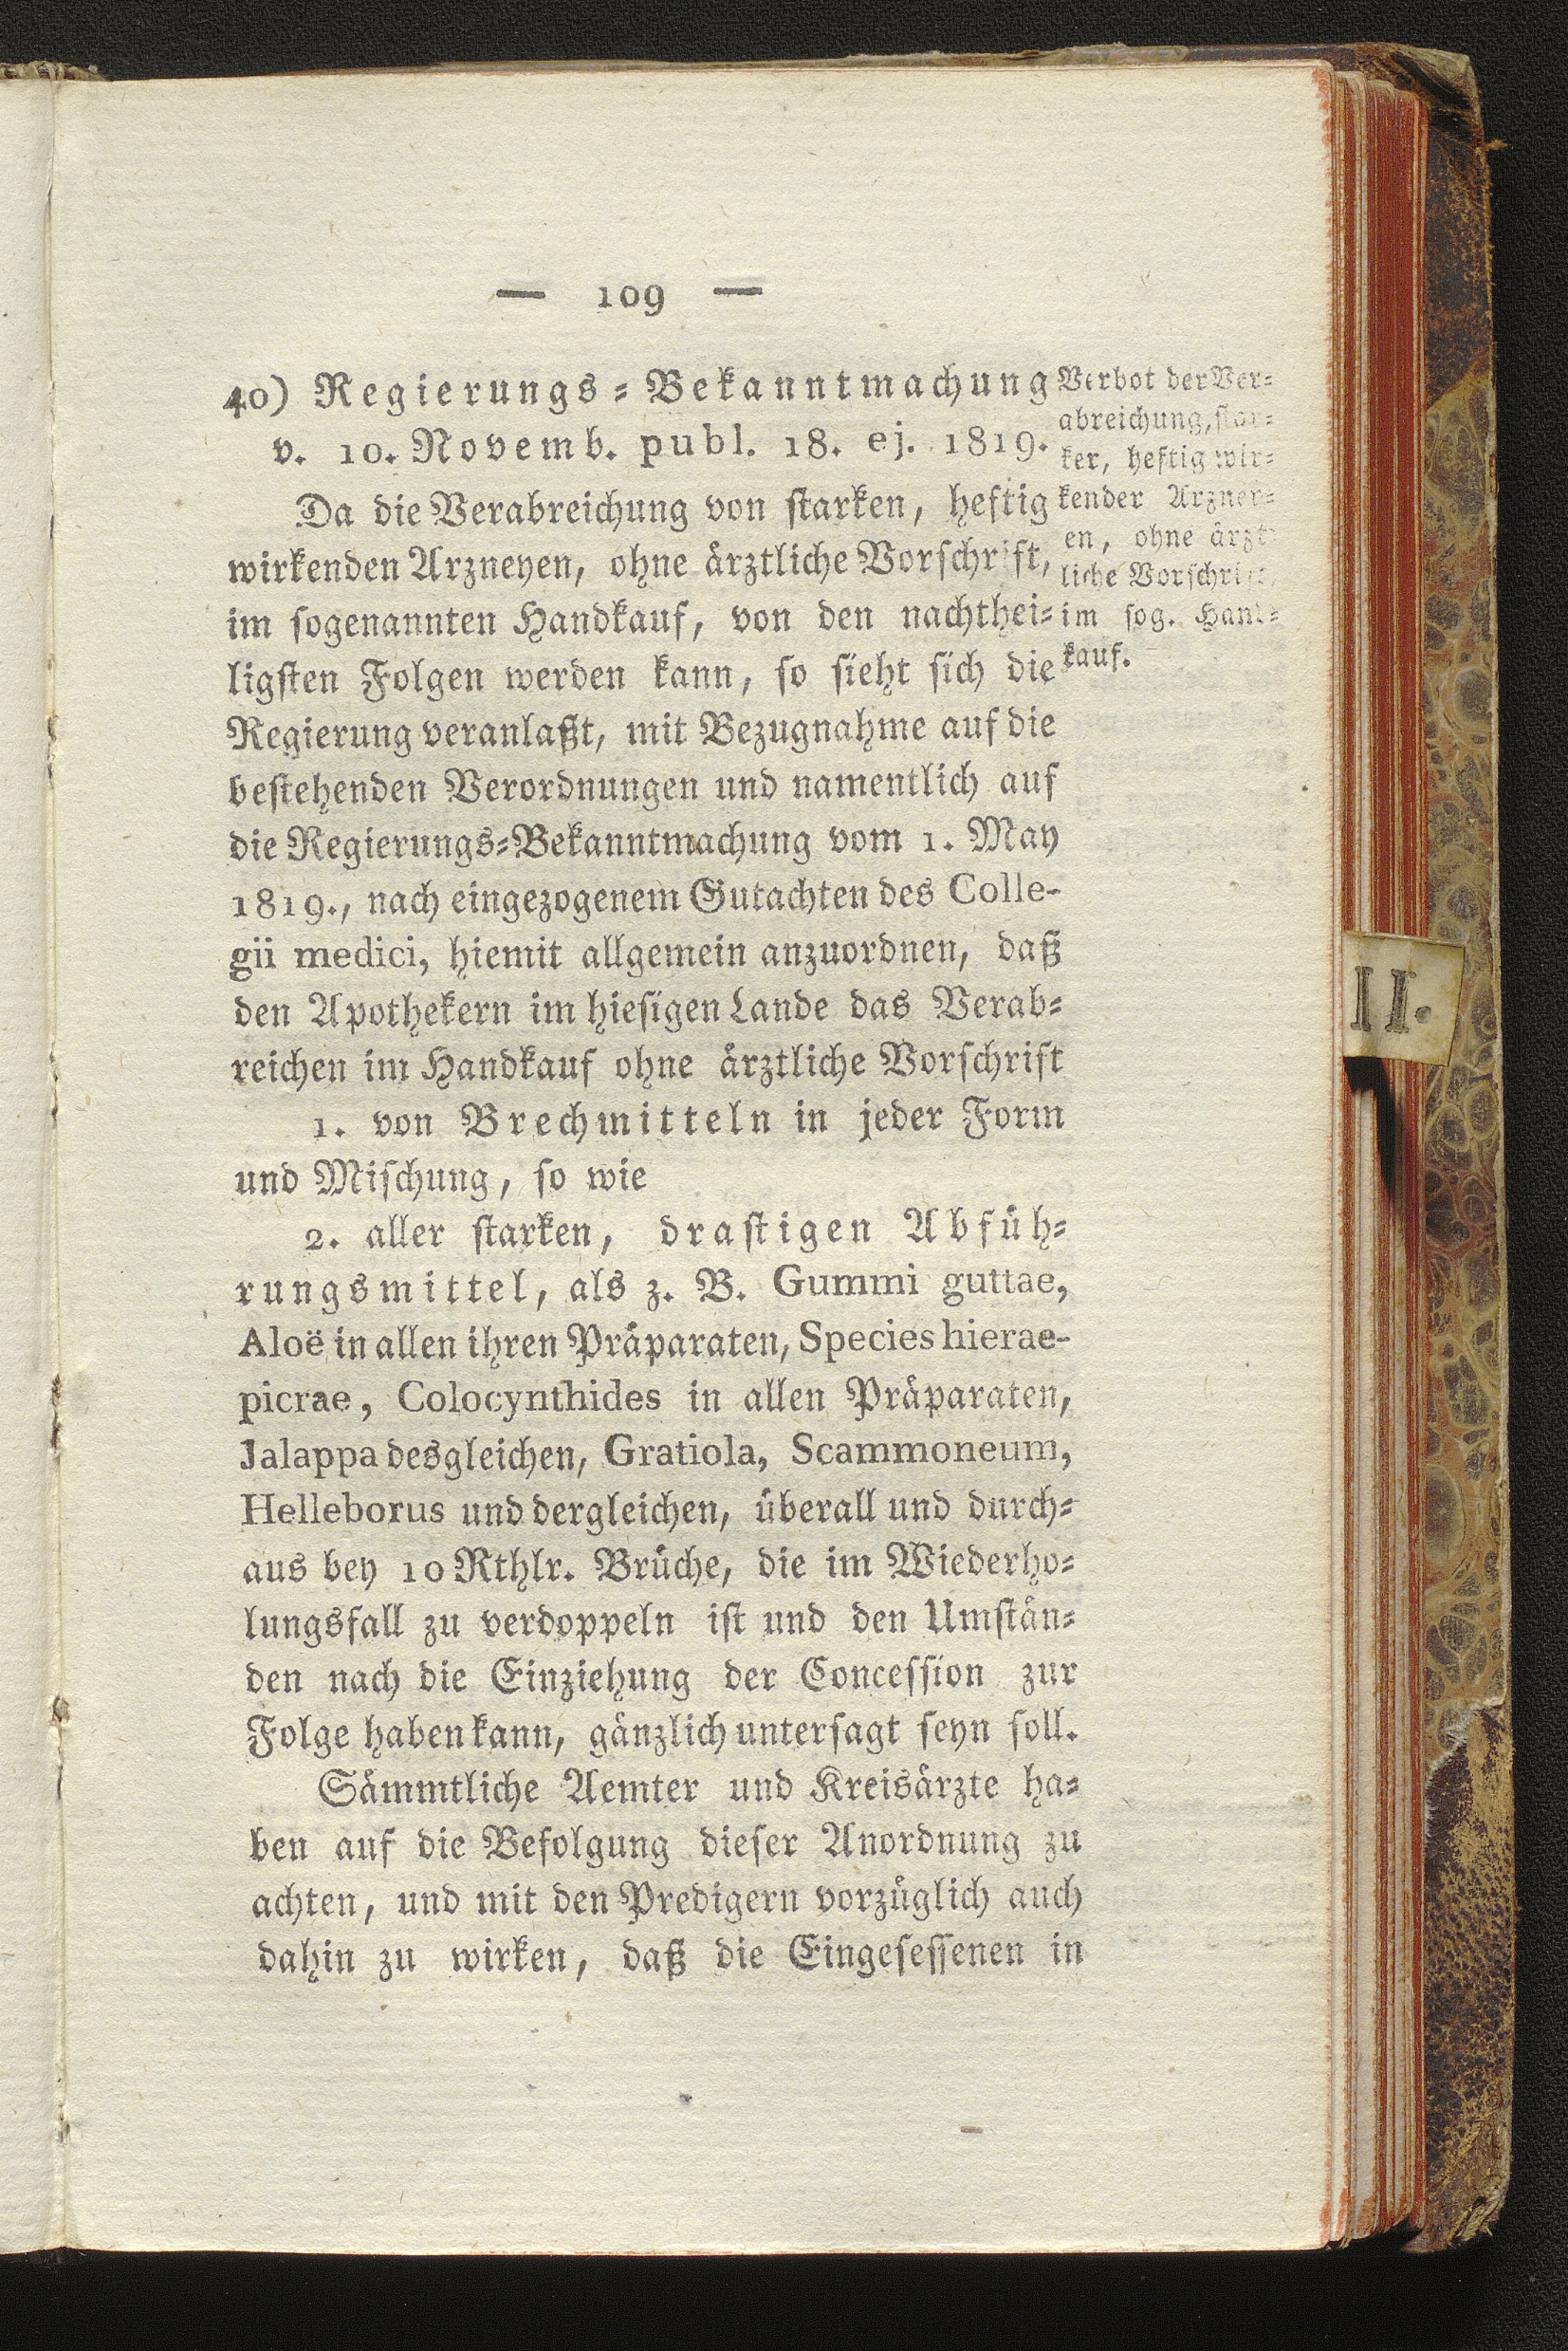 — 109 —
40) Regierungs-Bekanntmachung
v. 10. Novemb. publ. 18. ej. 1819.
Da die Verabreichung von starken, heftig
wirkenden Arzneyen, ohne ärztliche Vorschrift,
im sogenannten Handkauf, von den nachthei-
ligsten Folgen werden kann, so sieht sich die
Regierung veranlaßt, mit Bezugnahme auf die
bestehenden Verordnungen und namentlich auf
die Regierungs-Bekanntmachung vom 1. May
1819., nach eingezogenem Gutachten des Colle-
gii medici, hiemit allgemein anzuordnen, daß
den Apothekern im hiesigen Lande das Verab-
reichen im Handkauf ohne ärztliche Vorschrift
1. von Brechmitteln in jeder Form
und Mischung, so wie
2. aller starken, drastigen Abfüh-
rungsmittel, als z. B. Gummi guttae,
Aloë in allen ihren Präparaten, Species hierae-
picrae, Colocynthides in allen Präparaten,
Jalappa desgleichen, Gratiola, Scammoneum,
Helleborus und dergleichen, überall und durch-
aus bey 10 Rthlr. Brüche, die im Wiederho-
lungsfall zu verdoppeln ist und den Umstän-
den nach die Einziehung der Concession zur
Folge haben kann, gänzlich untersagt seyn soll.
Sämmtliche Aemter und Kreisärzte ha-
ben auf die Befolgung dieser Anordnung zu
achten, und mit den Predigern vorzüglich auch
dahin zu wirken, daß die Eingesessenen in
Verbot der Ver-
abreichung, star-
ker, heftig wir-
kender Arznei-
en, ohne ärzt-
liche Vorschrift,
im sog. Hand-
kauf.
II.